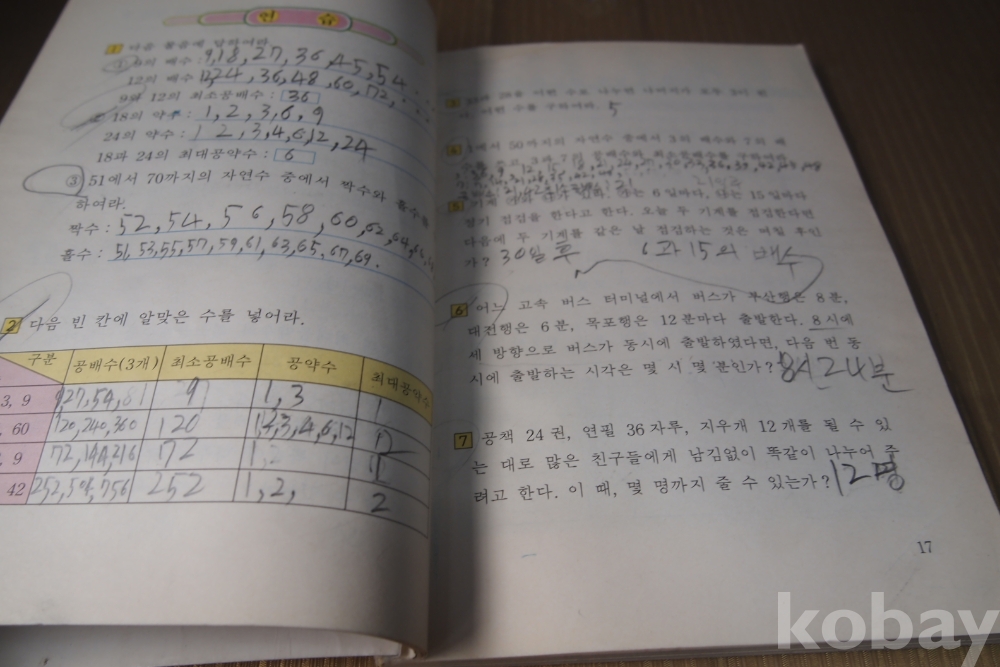 연 습
1 다음 물음에 답하여라.
① 9의 배수 : 9,18,27,36,45,54...
12의 배수 : 12,24,36,48,60,72,...
9와 12의 최소공배수 : 36
② 18의 약수 : 1,2,3,6,9
24의 약수 : 1 2,3,4,6,12,24
18과 24의 최대공약수 : 6
③ 51에서 70까지의 자연수 중에서 짝수와 홀수를
하여라.
짝수 : 52,54,56,58,60,62,64,
홀수 : 51,53,55,57,59,61,63,65,67,69.
2 다음 빈 칸에 알맞은 수를 넣어라.
구분 공배수(3개) 최소공배수 공약수 최대공약수
3, 9 27,54, 9 1,3 1
60 120,240,360 120 1,2,3,4,6,12 12
9 72,144,216 72 1 1
42 252,504,756 252 1,2, 2
어떤 수로 나누면 나머지가 모두 3이 된
다. 어떤 수를 구하여라. 5
4 1에서 50까지의 자연수 중에서 3의 배수와 7의 배
수를 쓰고, 3과 7의 공배수와 최소공배수를 구하여라.
5 기계 6일마다, 15일마다
정기 점검을 한다고 한다. 오늘 두 기계를 점검한다면
다음에 두 기계를 같은 날 점검하는 것은 며칠 후인
가? 30일 후 6과 15의 배수
6 어느 고속 버스 터미널에서 버스가 부산행은 8분,
대전행은 6분, 목포행은 12분마다 출발한다. 8시에
세 방향으로 버스가 동시에 출발하였다면, 다음 번 동
시에 출발하는 시각은 몇 시 몇 분인가? 8시 24분
7 공책 24권, 연필 36자루, 지우개 12개를 될 수 있
는 대로 많은 친구들에게 남김없이 똑같이 나누어 주
려고 한다. 이 때, 몇 명까지 줄 수 있는가? 12명
17
kobay